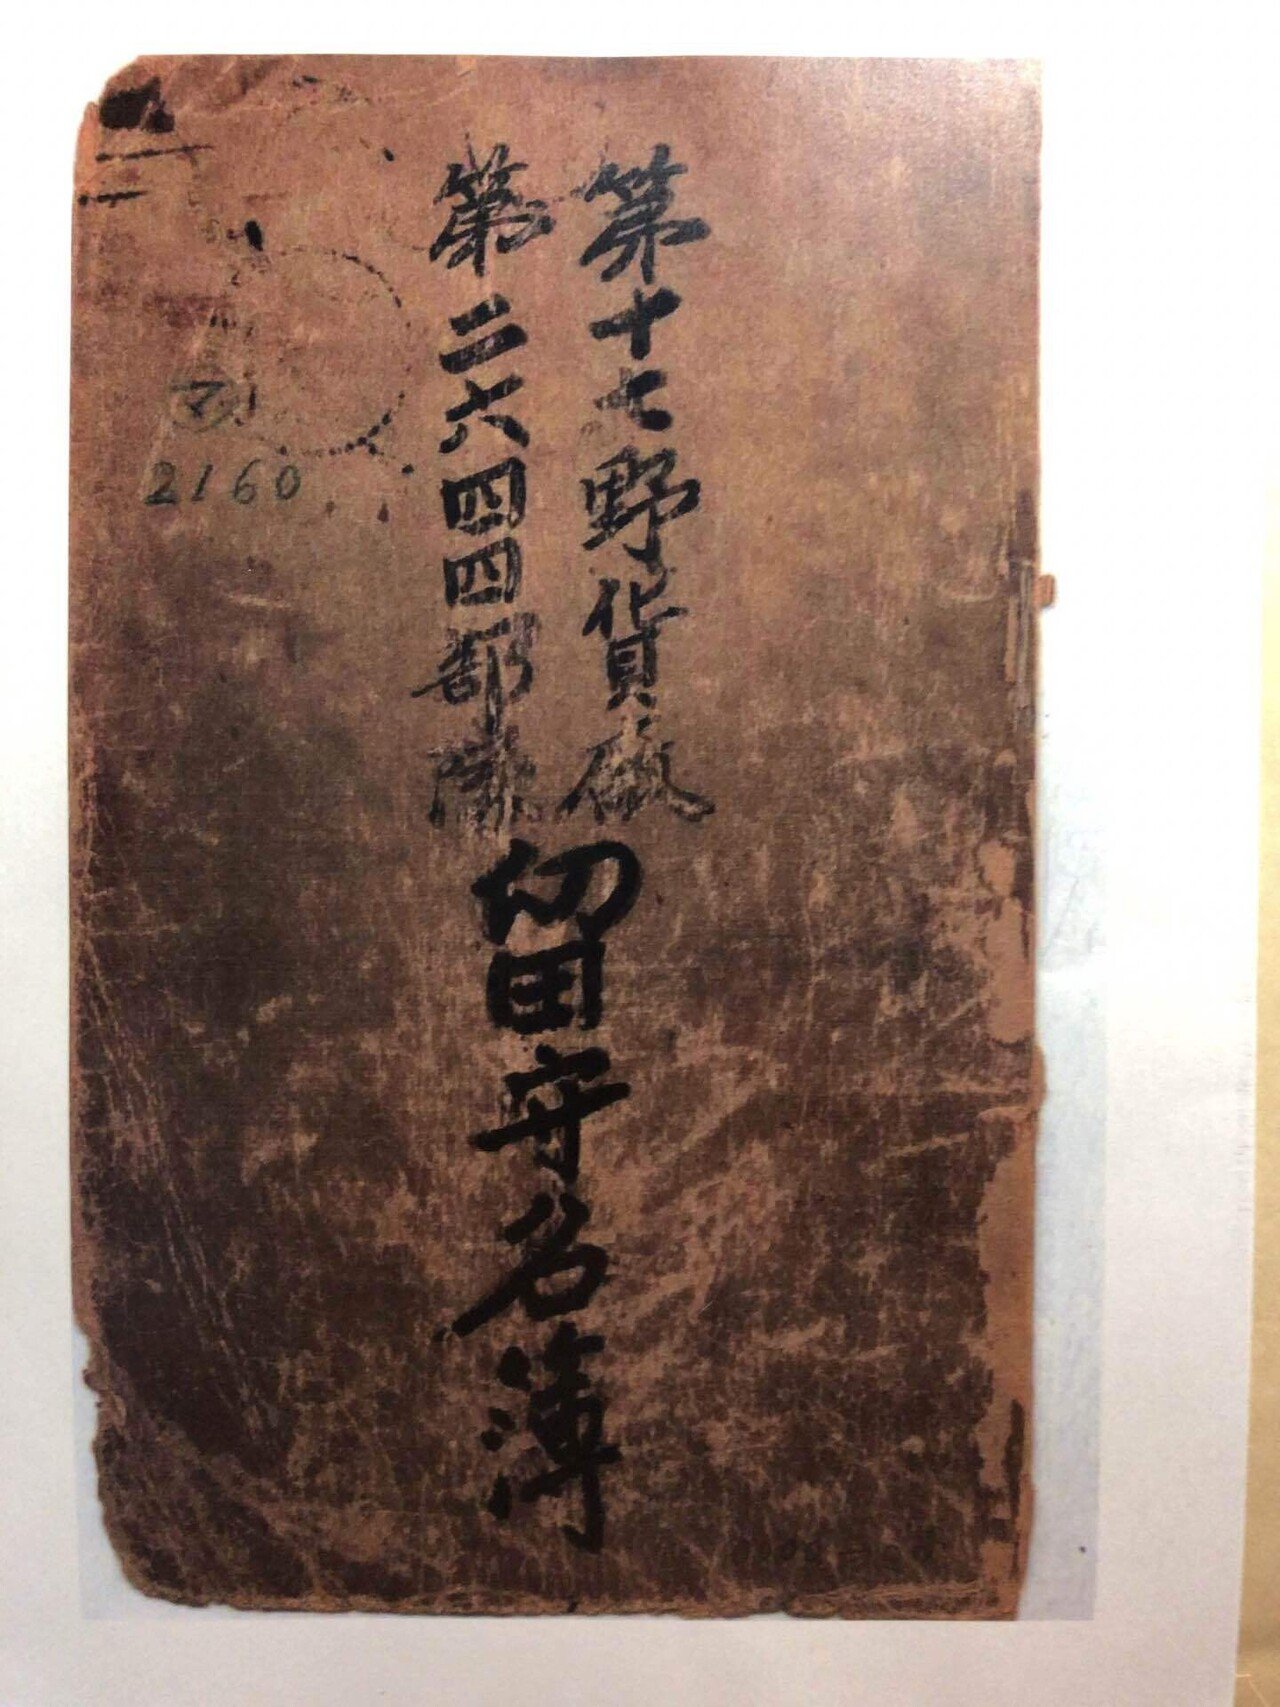 第十七野貨廠
第二六四四部隊
留守名簿
マ
2160